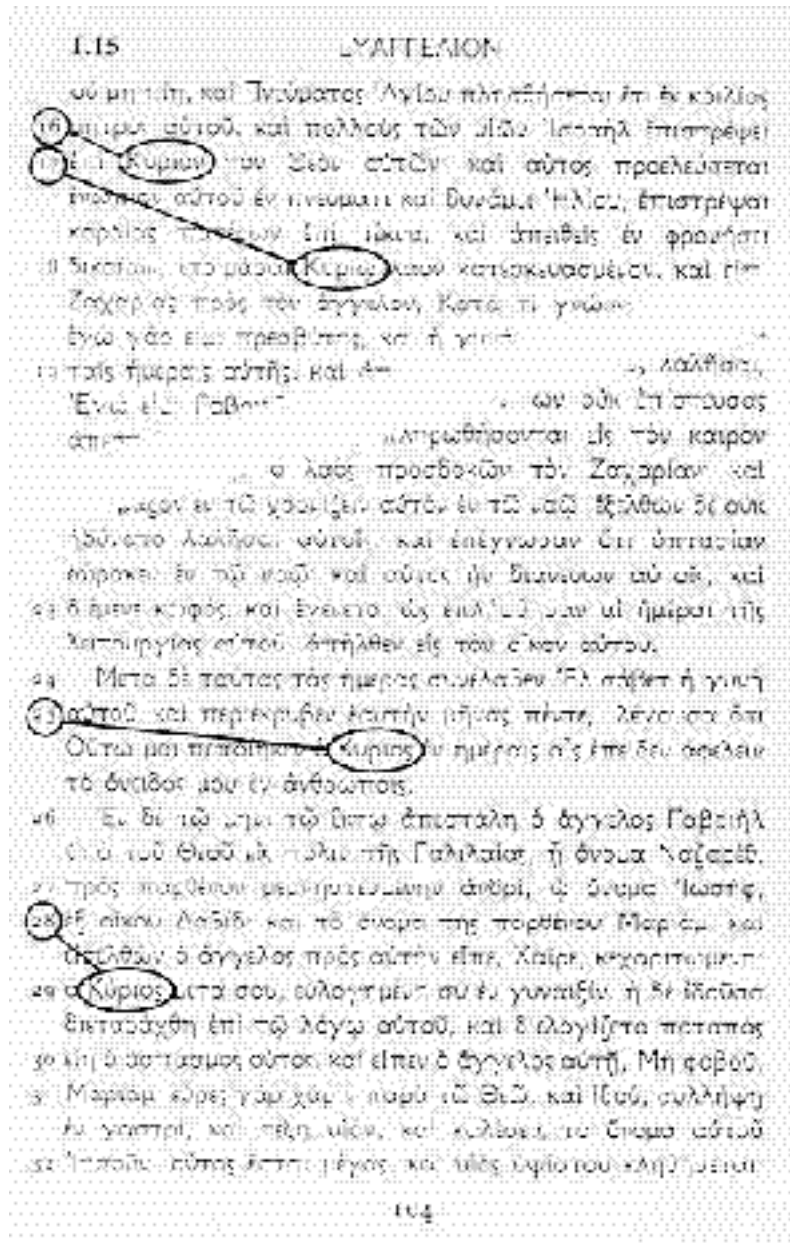 1.15 ΕΥΑΓΓΕΛΙΟΝ
οὐ μὴ πίῃ, καὶ Πνεύματος Ἁγίου πλησθήσεται ἔτι ἐκ κοιλίας
16 μητρὸς αὐτοῦ, καὶ πολλοὺς τῶν υἱῶν Ἰσραὴλ ἐπιστρέψει
17 ἐπὶ Κύριον τὸν Θεὸν αὐτῶν· καὶ αὐτὸς προελεύσεται
ἐνώπιον αὐτοῦ ἐν πνεύματι καὶ δυνάμει Ἠλίου, ἐπιστρέψαι
καρδίας πατέρων ἐπὶ τέκνα, καὶ ἀπειθεῖς ἐν φρονήσει
18 δικαίων, ἑτοιμάσαι Κυρίῳ λαὸν κατεσκευασμένον. καὶ
Ζαχαρίας πρὸς τὸν ἄγγελον, Κατὰ τί
ἐγὼ γάρ εἰμι πρεσβύτης, καὶ ἡ
ταῖς ἡμέραις αὐτῆς. καὶ λαλῆσαι,
Ἐγώ εἰμι οὐκ ἐπίστευσας
πληρωθήσονται εἰς τὸν καιρὸν
ὁ λαὸς προσδοκῶν τὸν Ζαχαρίαν· καὶ
ἐν τῷ χρονίζειν αὐτὸν ἐν τῷ ναῷ. ἐξελθὼν δὲ οὐκ
ἠδύνατο λαλῆσαι αὐτοῖς, καὶ ἐπέγνωσαν ὅτι ὀπτασίαν
ἑώρακεν ἐν τῷ ναῷ· καὶ αὐτὸς ἦν διανεύων αὐτοῖς, καὶ
23 διέμενε κωφός. καὶ ἐγένετο ὡς ἐπλήσθησαν αἱ ἡμέραι τῆς
λειτουργίας αὐτοῦ, ἀπῆλθεν εἰς τὸν οἶκον αὐτοῦ.
24 Μετὰ δὲ ταύτας τὰς ἡμέρας συνέλαβεν Ἐλισάβετ ἡ γυνὴ
25 αὐτοῦ· καὶ περιέκρυβεν ἑαυτὴν μῆνας πέντε, λέγουσα ὅτι
Οὕτω μοι πεποίηκεν ὁ Κύριος ἐν ἡμέραις αἷς ἐπεῖδεν ἀφελεῖν
τὸ ὄνειδός μου ἐν ἀνθρώποις.
26 Ἐν δὲ τῷ μηνὶ τῷ ἕκτῳ ἀπεστάλη ὁ ἄγγελος Γαβριὴλ
ὑπὸ τοῦ Θεοῦ εἰς πόλιν τῆς Γαλιλαίας, ᾗ ὄνομα Ναζαρέθ,
27 πρὸς παρθένον μεμνηστευμένην ἀνδρί, ᾧ ὄνομα Ἰωσήφ,
28 ἐξ οἴκου Δαβίδ· καὶ τὸ ὄνομα τῆς παρθένου Μαριάμ. καὶ
εἰσελθὼν ὁ ἄγγελος πρὸς αὐτὴν εἶπε, Χαῖρε, κεχαριτωμένη·
29 ὁ Κύριος μετὰ σοῦ, εὐλογημένη σὺ ἐν γυναιξίν. ἡ δὲ ἰδοῦσα
διεταράχθη ἐπὶ τῷ λόγῳ αὐτοῦ, καὶ διελογίζετο ποταπὸς
30 εἴη ὁ ἀσπασμὸς οὗτος. καὶ εἶπεν ὁ ἄγγελος αὐτῇ, Μὴ φοβοῦ,
31 Μαριάμ· εὗρες γὰρ χάριν παρὰ τῷ Θεῷ. καὶ ἰδού, συλλήψῃ
ἐν γαστρί, καὶ τέξῃ υἱόν, καὶ καλέσεις τὸ ὄνομα αὐτοῦ
32 Ἰησοῦν. οὗτος ἔσται μέγας, καὶ υἱὸς ὑψίστου κληθήσεται·
104